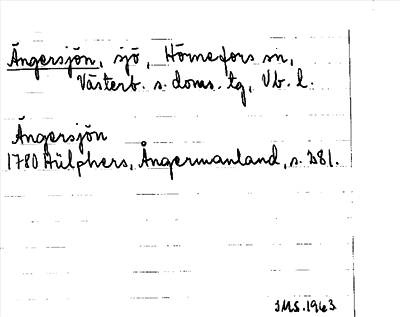 Ängersjön, sjö, Hörnefors sn,
Västerb. s. doms. tg, Vb. l.
Ängersjön
1780 Hülphers, Ångermanland, s. 281.
IMS. 1963